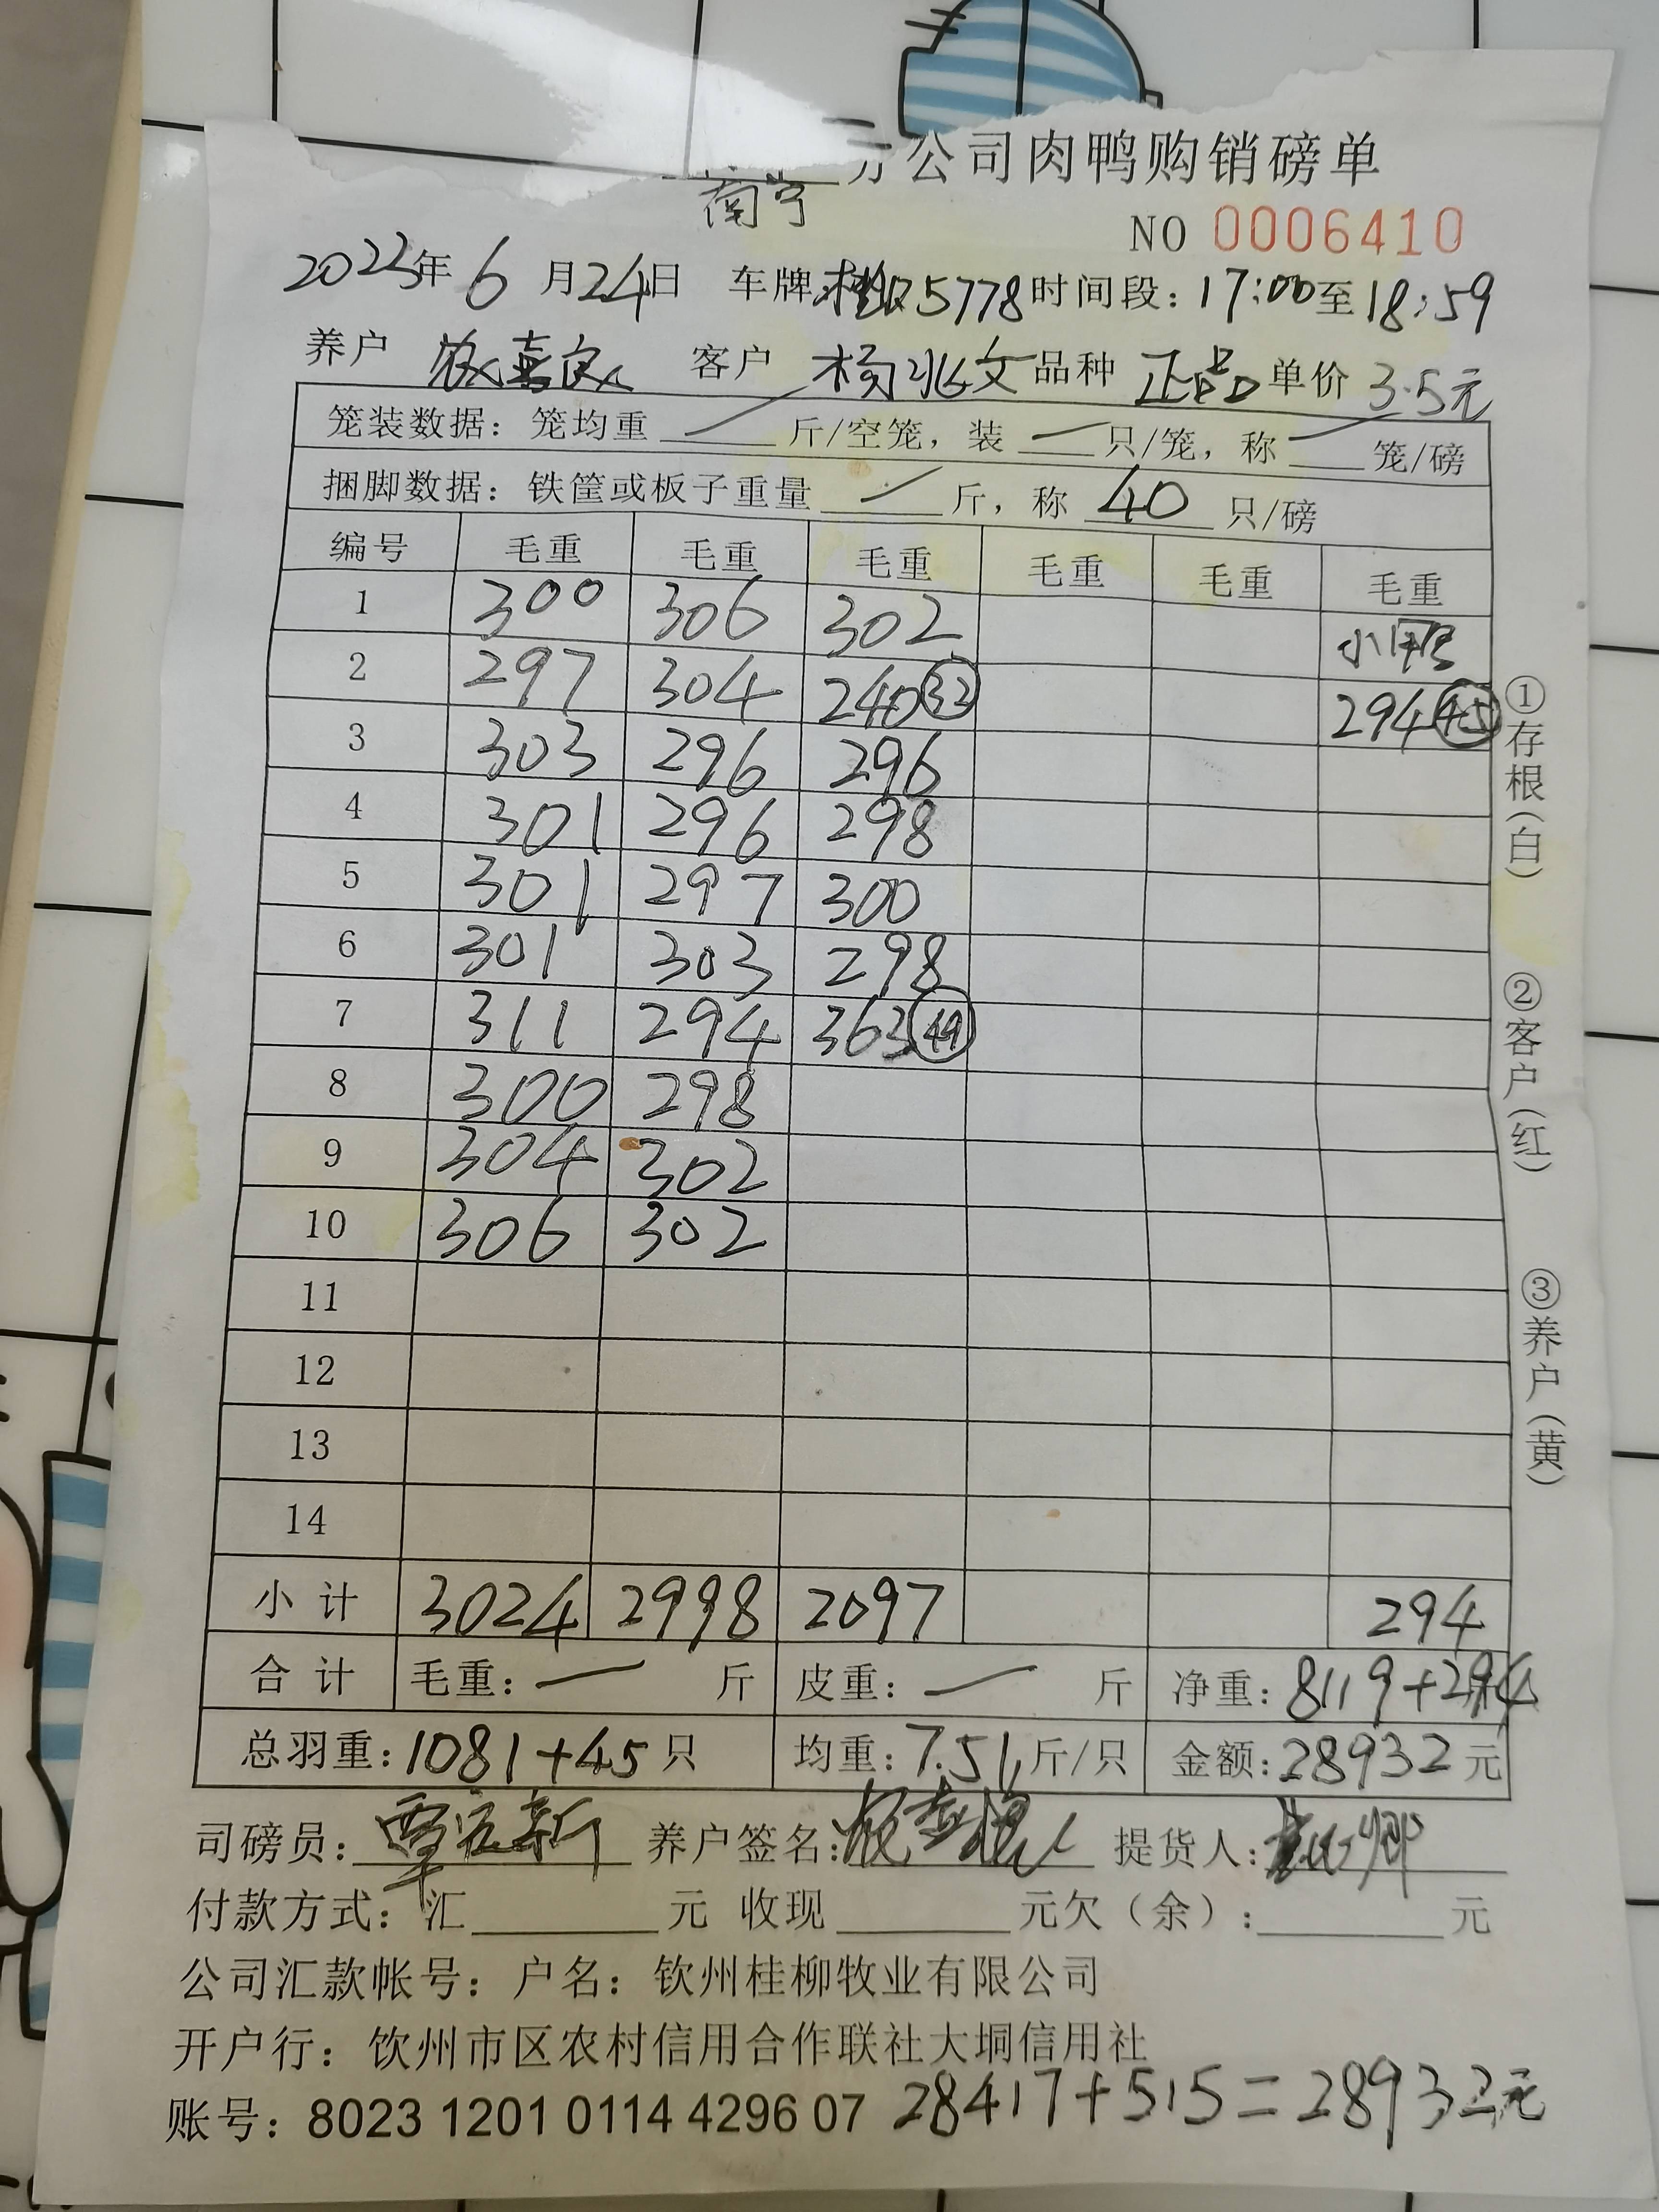 公司肉鸭购销磅单
南宁
NO 0006410
2023年6月24日 车牌 5778 时间段：17:00至18:59
养户 农嘉良 客户 杨兆文 品种 正品 单价 3.5元
笼装数据：笼均重 — 斤/空笼，装 — 只/笼，称 — 笼/磅
捆脚数据：铁筐或板子重量 — 斤，称 40 只/磅
编号 毛重 毛重 毛重 毛重 毛重 毛重
1 300 306 302
2 297 304 240 32 294 45
3 303 296 296
4 301 296 298
5 301 297 300
6 301 303 298
7 311 294 363 49
8 300 298
9 304 302
10 306 302
11
12
13
14
小计 3024 2998 2097 294
合计 毛重：— 斤 皮重：— 斤 净重：8119+294
总羽重：1081+45只 均重：7.51斤/只 金额：28932元
司磅员： 养户签名： 提货人：
付款方式：汇 元 收现 元欠（余）： 元
公司汇款帐号：户名：钦州桂柳牧业有限公司
开户行：钦州市区农村信用合作联社大垌信用社
账号：8023 1201 0114 4296 07 28417+515=28932元
①存根（白）
②客户（红）
③养户（黄）